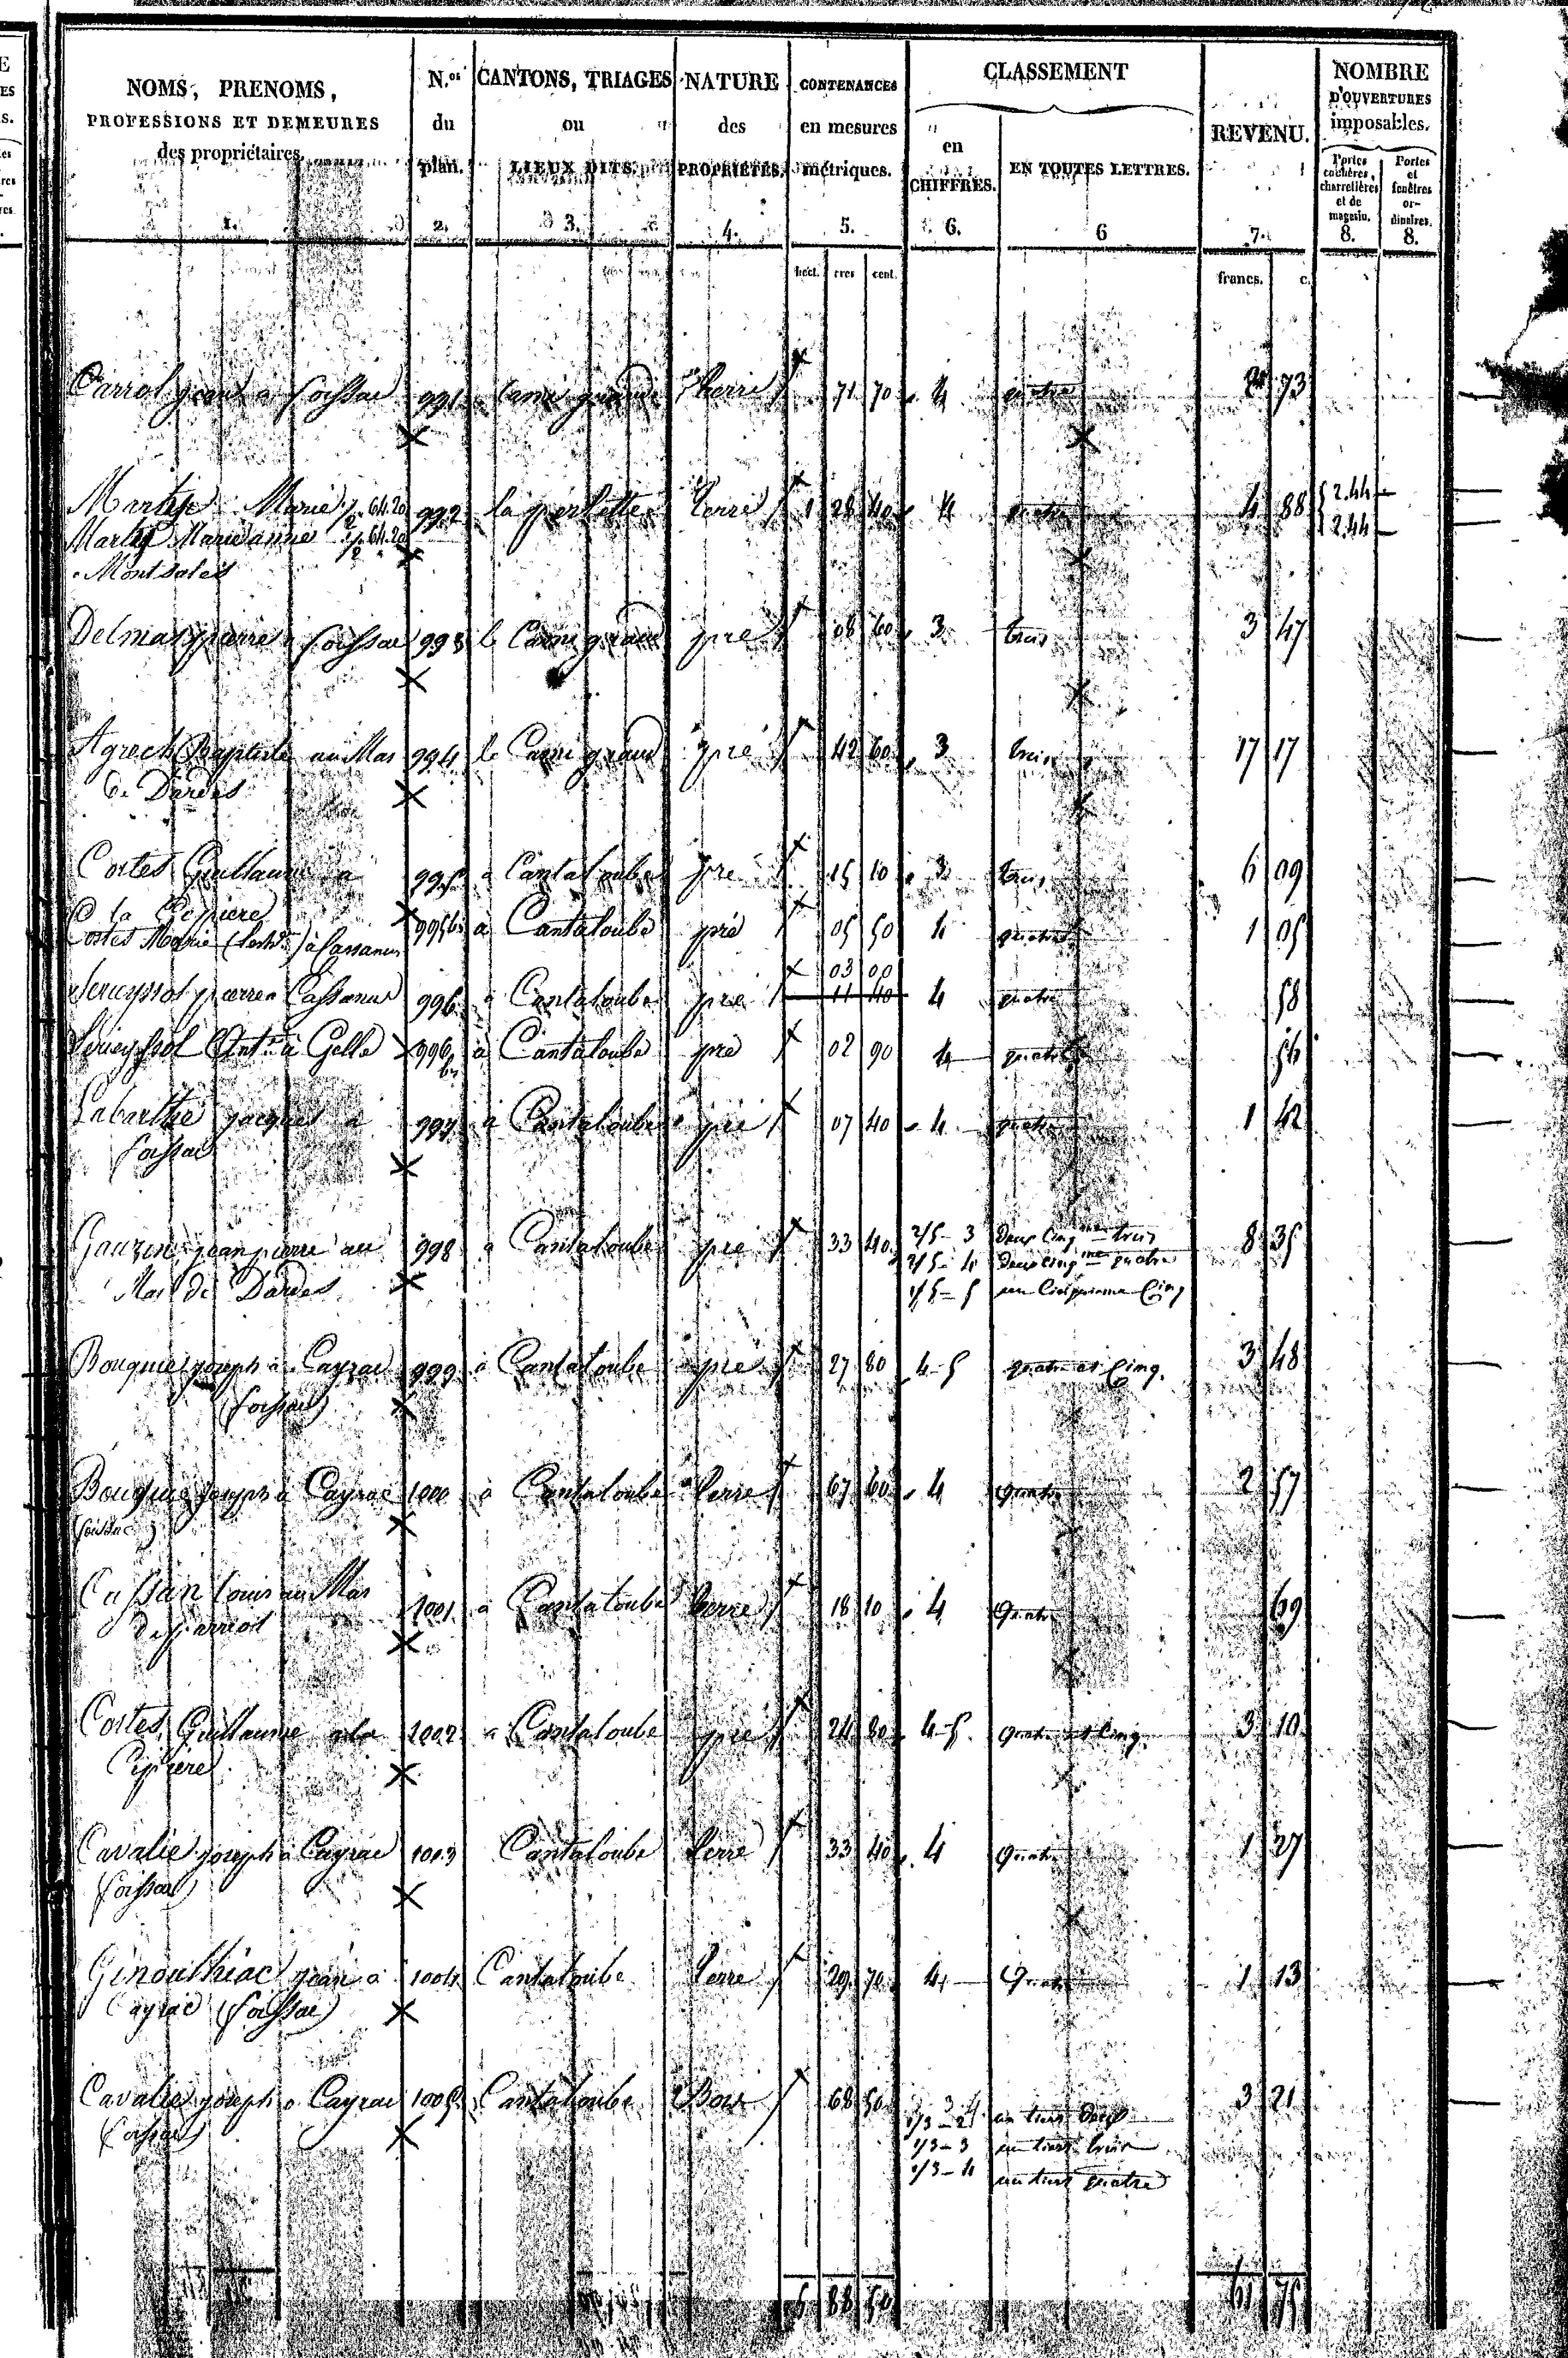 NOMS, PRENOMS, PROFESSIONS ET DEMEURES des propriétaires. 1.
N.os du plan. 2.
CANTONS, TRIAGES ou LIEUX DITS. 3.
NATURE des PROPRIÉTÉS. 4.
CONTENANCES en mesures métriques. 5.
CLASSEMENT
en CHIFFRES. 6.
EN TOUTES LETTRES. 6
REVENU. 7.
NOMBRE D'OUVERTURES imposables.
Portes cochères, charretières et de magasin. 8.
Portes et fenêtres ordinaires. 8.
hect. ares cent. francs. c.
Carrol jean à foissac 991 terre 71 70 4 quatre 73
Marty Marie 1/2 64.20 992 la terre 1 28 40 4 quatre 4 88 2.44
Marty Marieanne 1/2 64.20 2.44
Montsales
Delmas pierre à foissac 993 le Cami grand pré 08 60 3 trois 3 47
Agrech Baptiste au Mas 994 le Cami grand pré 42 60 3 trois 17 17
de Dardes
Costes Guillaume à 995 à Cantaloube pré 15 10 3 trois 6 09
la Cipiere
Costes Marie à Cassanus 995bis à Cantaloube pré 05 50 4 quatre 1 05
03 00
pierre à Cassanus 996 à Cantaloube pré 11 40 4 quatre 58
à Gelle 996 bis à Cantaloube pré 02 90 4 quatre 56
Labarthe jacques à 997 à Cantaloube pré 07 40 4 quatre 1 42
foissac
Gauzin jean pierre au 998 à Cantaloube pré 33 40 2/5 - 3 deux cinq.me trois 8 35
Mas de Dardes 2/5 - 4 deux cinq.me quatre
1/5 - 5 un Cinquieme Cinq
Bouquié joseph à Cayrac 999 à Cantaloube pré 27 80 4-5 quatre et Cinq. 3 48
(foissac)
Bouquié joseph à Cayrac 1000 à Cantaloube terre 67 60 4 quatre 2 57
(foissac)
Cassan Louis au Mas 1001 à Cantaloube terre 18 10 4 quatre 69
Costes Guillaume à la 1002 à Cantaloube pré 24 80 4-5. quatre et Cinq. 3 10
Cipiere
Cavalié joseph à Cayrac 1003 Cantaloube terre 33 40 4 quatre 1 27
(foissac)
Ginoulhiac jean à 1004 Cantaloube terre 29 70 4 quatre 1 13
Cayrac (foissac)
Cavalié joseph à Cayrac 1005 Cantaloube Bois 68 50 1/3 - 2 un tiers deux 3 21
(foissac) 1/3 - 3 un tiers trois
1/3 - 4 un tiers quatre